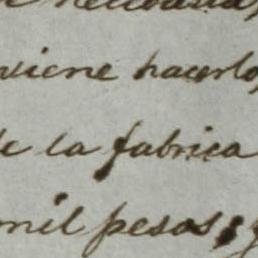 viene hacerlo,
de la fabrica
mil pesos, y